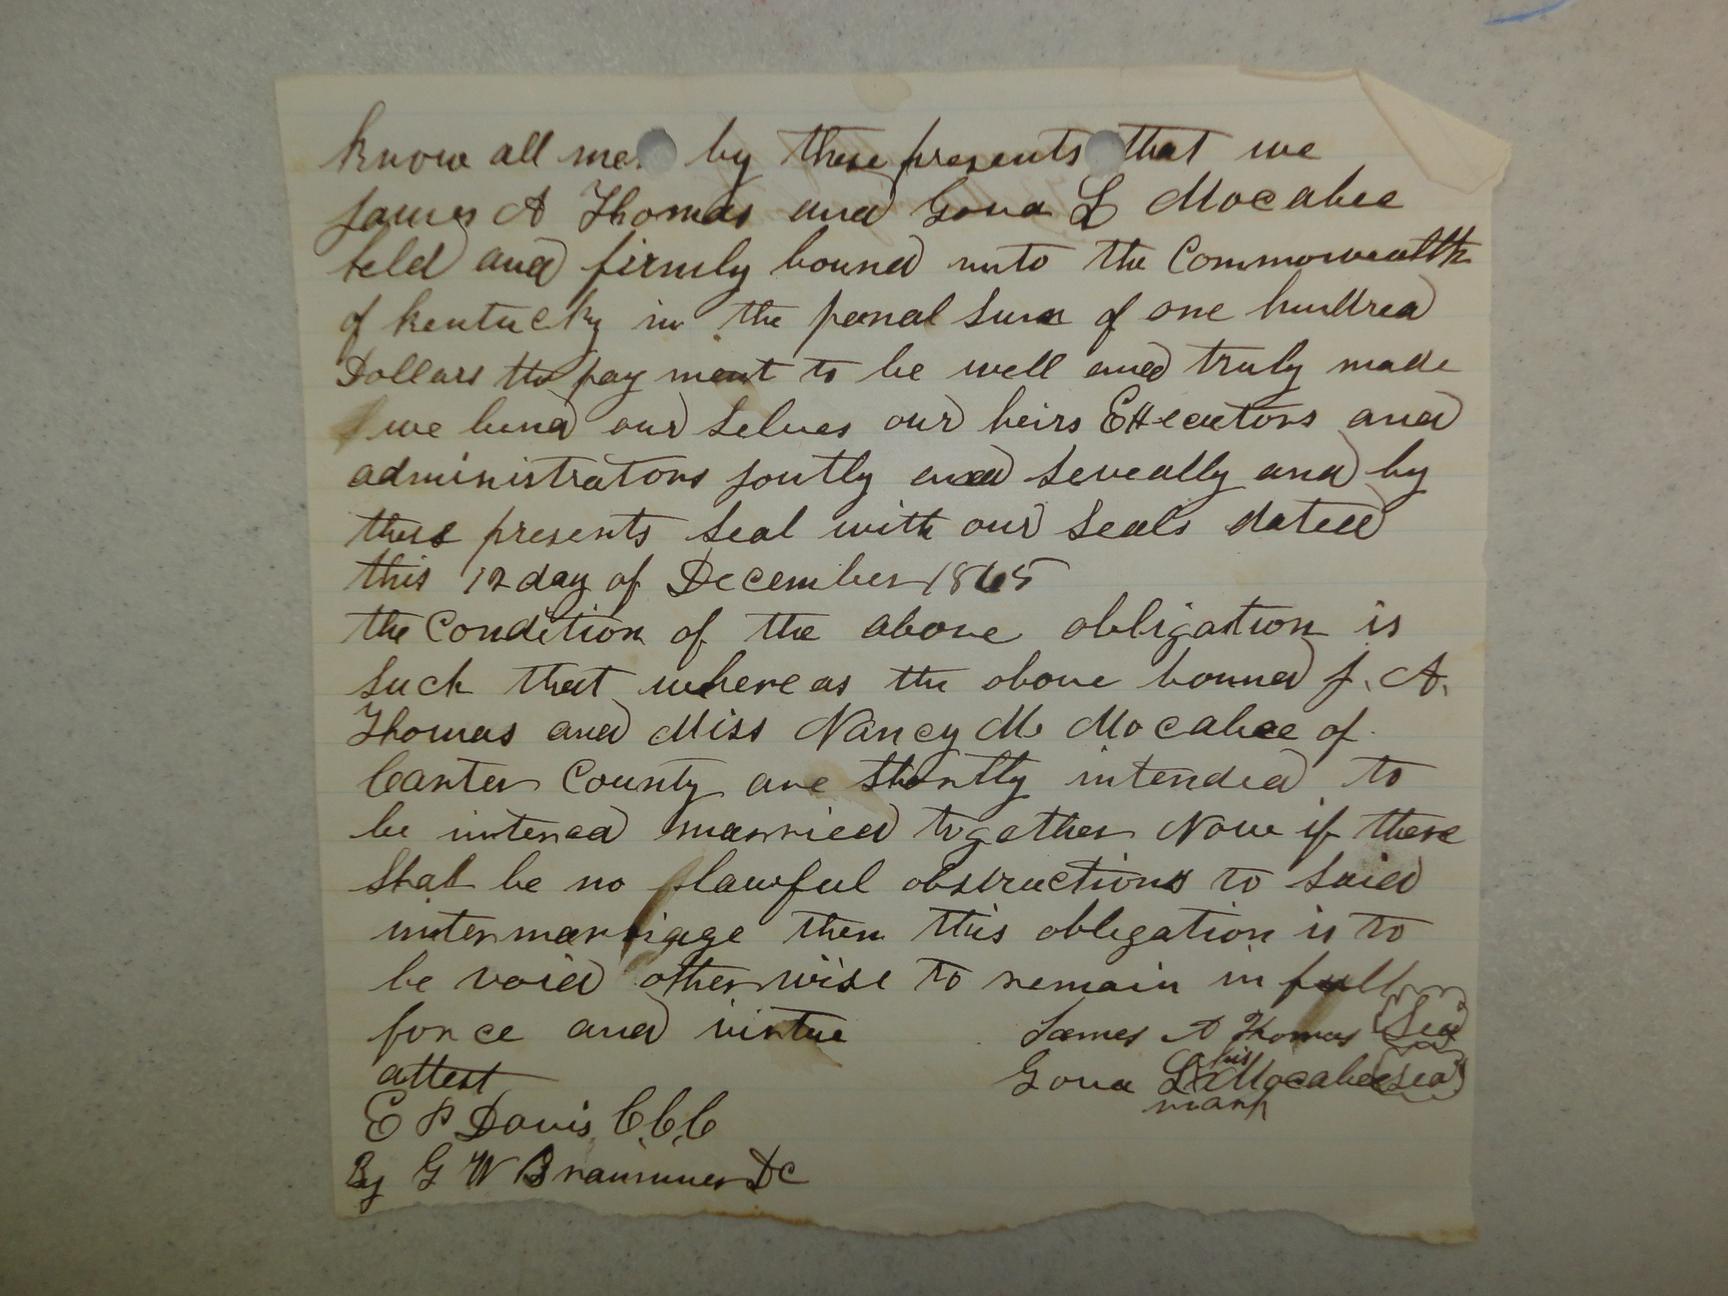 know all men by these presents that we
James A Thomas and Gova L Mocabee
held and firmly bound unto the Commowealth
of Kentucky in the penal sum of one hundred
Dollars the pay ment to be well and truly made
we bind our selves our heirs Executors and
administrators jontly and seveally and by
thes presents seal with our seals dated
this 12 day of December 1865
the Condition of the above obligation is
such that where as the above bound J. A.
Thomas and Miss Nancy M. Mocabee of
Carter County are shortly intended to
be intered married together Now if there
shal be no lawful obstructions to said
intermarriage then this obligation is to
be void other wise to remain in full
force and virtue
James A Thomas (Seal)
attest
Gova L his x mark Mocabee (Seal)
E P Davis C.C.C
By G W Brammer DC